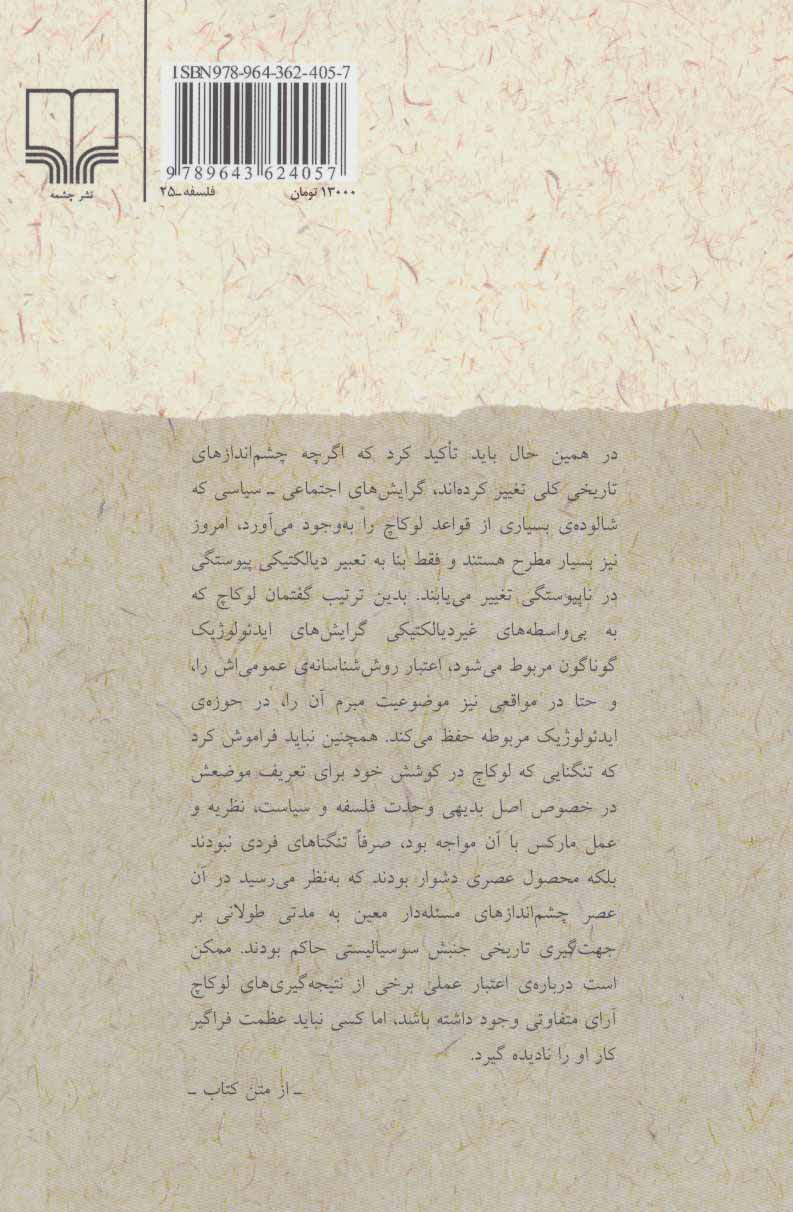 ISBN978-964-362-405-7
9 789643 624057
۱۳۰۰۰ تومان
فلسفه ـ ۲۵
نشر چشمه
در همین حال باید تأکید کرد که اگرچه چشم‌اندازهای
تاریخی کلی تغییر کرده‌اند، گرایش‌های اجتماعی ـ سیاسی که
شالوده‌ی بسیاری از قواعد لوکاچ را به‌وجود می‌آورد، امروز
نیز بسیار مطرح هستند و فقط بنا به تعبیر دیالکتیکی پیوستگی
در ناپیوستگی تغییر می‌یابند. بدین ترتیب گفتمان لوکاچ که
به بی‌واسطه‌های غیردیالکتیکی گرایش‌های ایدئولوژیک
گوناگون مربوط می‌شود، اعتبار روش‌شناسانه‌ی عمومی‌اش را،
و حتا در مواقعی نیز موضوعیت مبرم آن را، در حوزه‌ی
ایدئولوژیک مربوطه حفظ می‌کند. همچنین نباید فراموش کرد
که تنگنایی که لوکاچ در کوشش خود برای تعریف موضعش
در خصوص اصل بدیهی وحدت فلسفه و سیاست، نظریه و
عمل مارکس با آن مواجه بود، صرفاً تنگناهای فردی نبودند
بلکه محصول عصری دشوار بودند که به‌نظر می‌رسید در آن
عصر چشم‌اندازهای مسئله‌دار معین به مدتی طولانی بر
جهت‌گیری تاریخی جنبش سوسیالیستی حاکم بودند. ممکن
است درباره‌ی اعتبار عملی برخی از نتیجه‌گیری‌های لوکاچ
آرای متفاوتی وجود داشته باشد، اما کسی نباید عظمت فراگیر
کار او را نادیده گیرد.
ـ از متن کتاب ـ